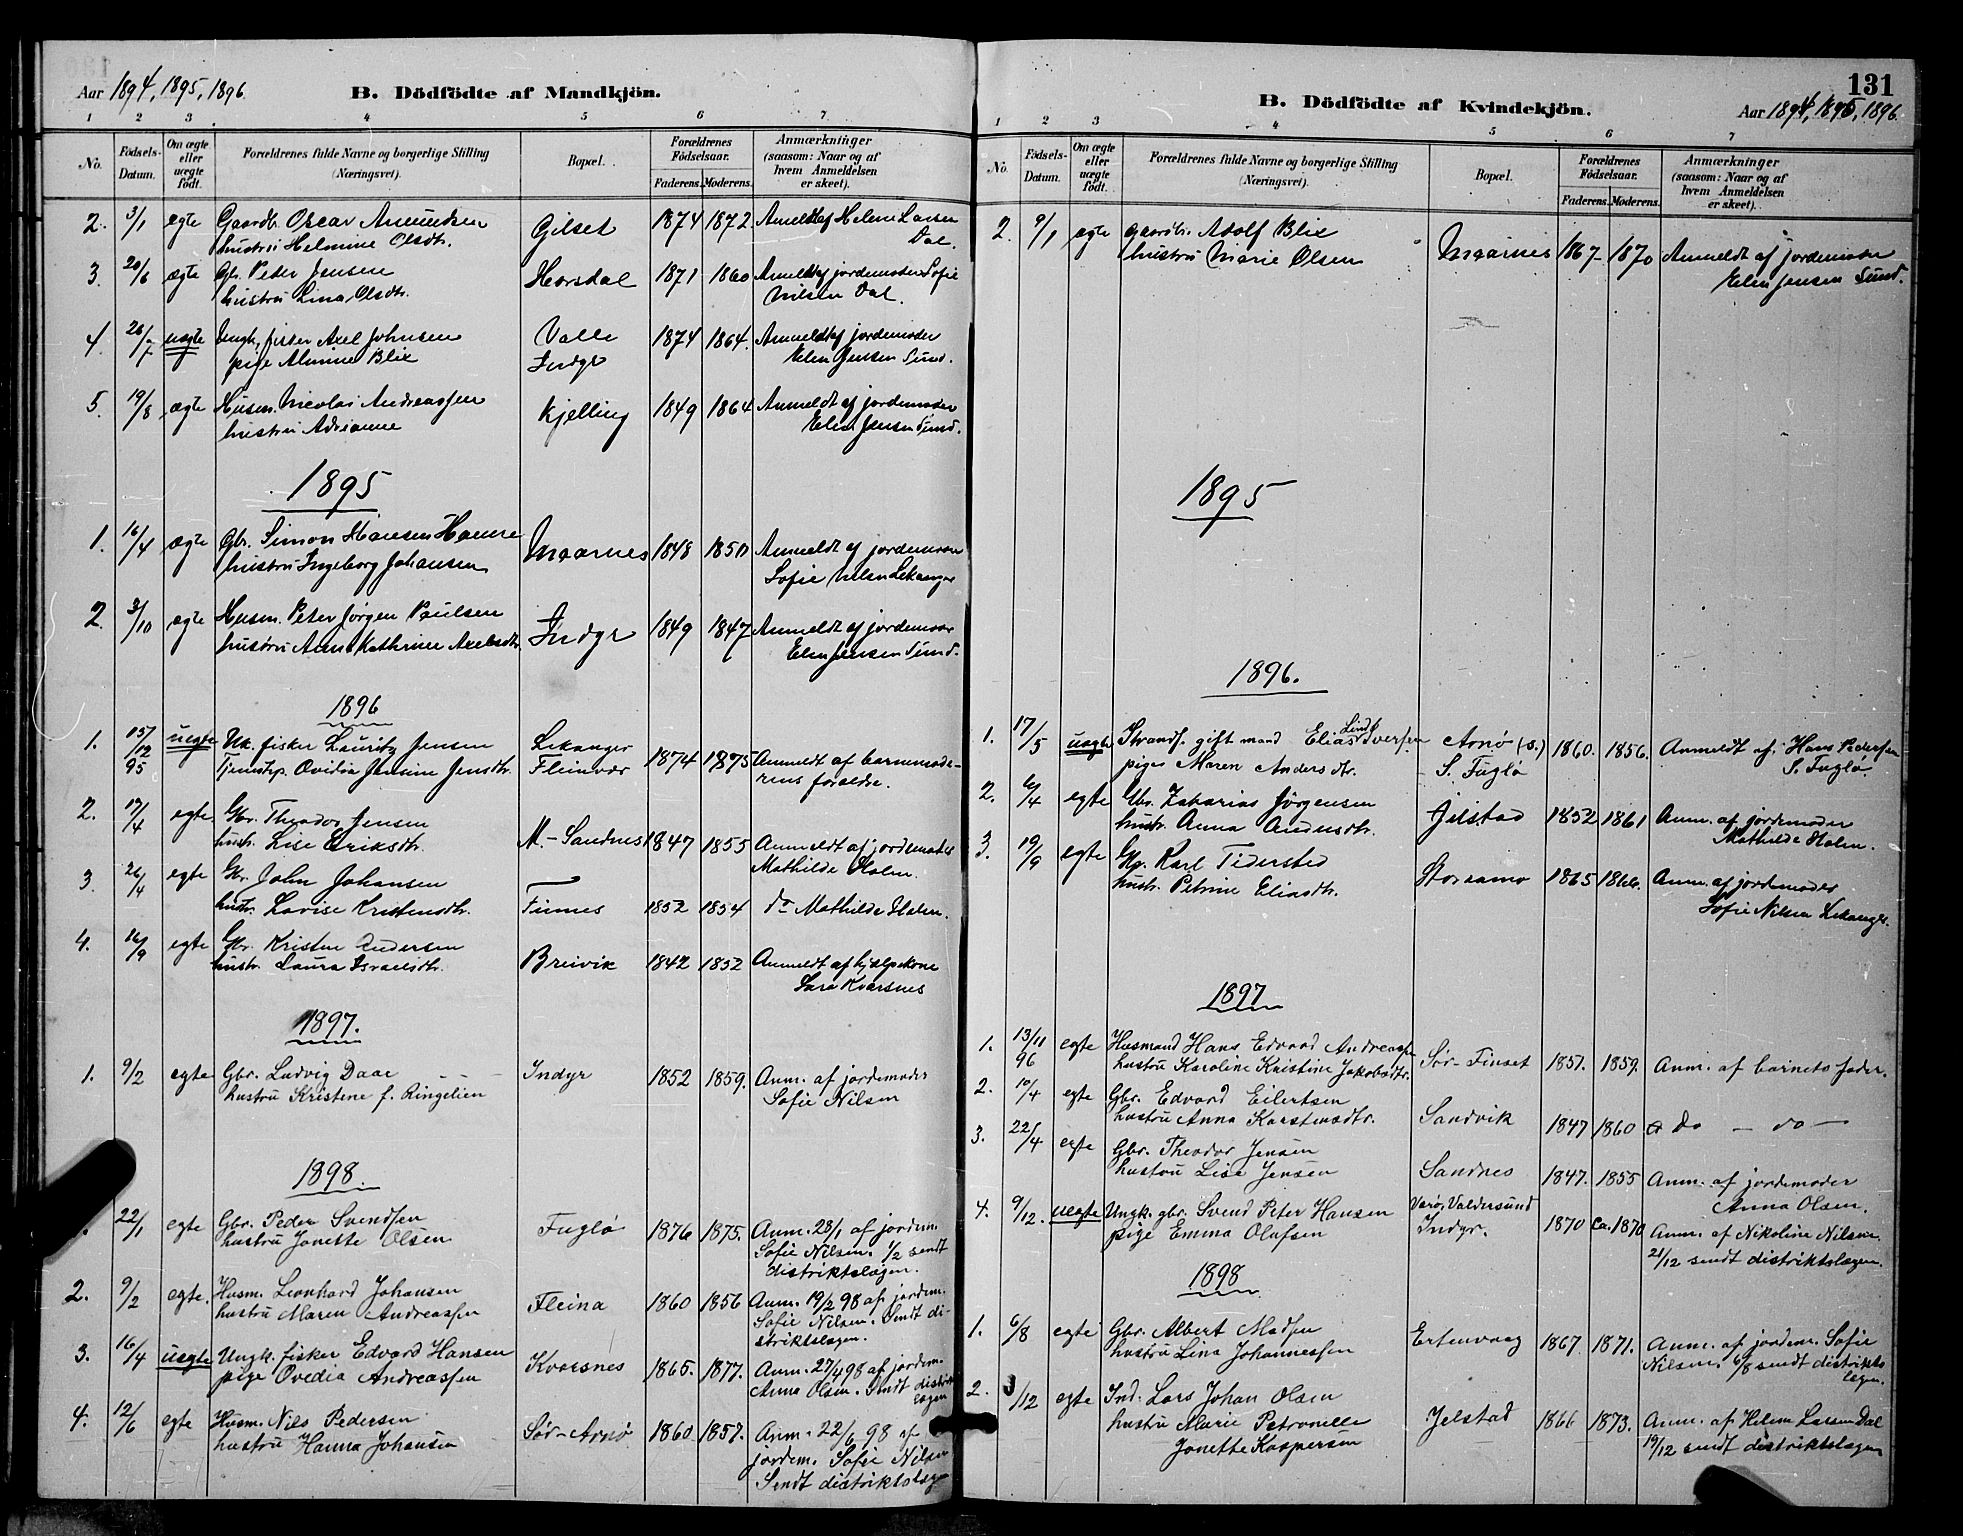 Aar 1894, 1895, 1896.
B. Dödfödte af Mandkjön.
1 2 3 4 5 6 7
No.
Födsels-Datum.
Om ægte eller uægte födt.
Forældrenes fulde Navne og borgerlige Stilling (Næringsvei).
Bopæl.
Forældrenes Födselsaar.
Faderens. Moderens.
Anmærkninger (saasom: Naar og af hvem Anmeldelsen er skeet).
2. 3/1 egte Gaardbr. Oscar Amundsen Gilset 1874 1872 Anmeldt af Helene Larsen
hustru Helmine Olsdtr. Dal.
3. 20/6 ægte Gbr. Peder Jensen Horsdal 1871 1860 Anmeldt af jordemoder Sofie
hustru Lina Olsdtr. Nilsen Dal.
4. 26/7 uegte Ungk. fisker Axel Johnsen Valle 1874 1864. Anmeldt af jordemoder
pige Almine Blix Indyr Elen Jensen Sund.
5. 19/8 ægte Husm. Nicolai Andreassen Kjelling 1849 1864 Anmeldt af jordemoder
hustru Adrianne Elen Jensen Sund.
1895
1. 16/4 ægte Gbr. Simon Hansen Hamre Maarnes 1848 1850 Anmeldt af jordemoder
hustru Ingeborg Johansen Sofie Nilsen Lekanger
2. 3/10 ægte Husm. Peter Jørgen Paulsen Indyr 1849 1847 Anmeldt af jordemoder
hustru Ane Kathrine Axelsdtr. Elen Jensen Sund.
1896
1. 15/12 95 uegte Uk. fisker Lauritz Jensen Lekanger 1874 1875 Anmeldt af barnemode-
Tjenstp. Ovidia Jensine Jensdtr. Fleinvær rens forældre.
2. 17/4 egte Gbr. Theodor Jensen M.-Sandnes 1847 1855 Anmeldt af jordemoder
hustr. Lise Eriksdtr. Mathilde Holm.
3. 26/4 egte Gbr. John Johansen
hustr. Lovise Kristensdtr. Finnes 1852 1854 do Mathilde Holm.
4. 16/9 egte Gbr. Kristen Andersen Breivik 1842 1852 Anmeldt af hjælpekone
hustr. Laura Israelsdtr. Sara Kvarsnes
1897.
1. 9/2 egte Gbr. Ludvig Daae Indyr 1852 1859. Anm. af jordemoder
hustru Kristene f. Ringelien Sofie Nilsen
1898.
22/1 egte Gbr. Peder Svendsen Fuglø 1876 1875. Anm. 28/1 af jordem.
hustru Jonette Olsen Sofie Nilsen. 1/2 sendt
distriktslægen.
2. 9/2 egte. Husm. Leonhard Johansen Fleina 1860 1856 Anm. 19/2 98 af jordem.
hustru Maren Andreassen Sofie Nilsen. Sendt di-
striktslægen.
3. 16/4 uegte Ungk. fisker Edvard Hansen Kvarsnes 1865. 1877. Anm. 27/4 98 af jordem.
pige Ovedia Andreassen Anna Olsen. Sendt distrikts
lægen
4. 12/6 egte Husm. Nils Pedersen Sør-Arnø 1860 1857. Anm. 22/6 98 af
hustru Hanna Johansen jordem. Sofie Nilsen
Sendt distriktslægen
131
B. Dödfödte af Kvindekjön.
Aar 1894, 1895, 1896.
1 2 3 4 5 6 7
No.
Födsels-Datum.
Om ægte eller uægte födt.
Forældrenes fulde Navne og borgerlige Stilling (Næringsvei).
Bopæl.
Forældrenes Födselsaar.
Faderens. Moderens.
Anmærkninger (saasom: Naar og af hvem Anmeldelsen er skeet).
2. 9/1 ægte Gaardbr. Adolf Blix Maarnes 1867 1870 Anmeldt af jordemoder
hustru Marie Olsen Elen Jensen Sund.
1895
1896.
1. 17/5 uegte Strands. gift mand Elias Lind Iversen Arnø (S.) 1860. 1856. Anmeldt af Hans Pedersen
pige Maren Andersdtr. S. Fuglø S. Fuglø.
2. 6/4 egte Gbr. Zakarias Jörgensen Jilstad 1852 1861 Anm. af jordemoder
hustr. Anna Andersdtr. Mathilde Holm.
3. 19/9 egte Gbr. Karl Tidersted Storsamo 1865 1866. Anm. af jordemoder
hustr. Petrine Eliasdtr. Sofie Nilsen Lekanger.
1897
1. 13/11 96 egte Husmand Hans Edvard Andreassen Sør-Finset 1857. 1859. Anm. af barnets fader.
hustru Karoline Kristine Jakobsdtr.
2. 10/4 egte Gbr. Edvard Eilertsen
hustru Anna Karstensdtr. Sandvik 1847 1860 do - do -
3. 22/4 egte Gbr. Theodor Jensen
hustru Lise Jensen Sandnes 1847. 1855 Anm. af jordemoder
Anna Olsen.
4. 9/12. uegte Ungk. gbr. Svend Peter Hansen Varø, Valdersund 1870 ca. 1870 Anm. af Nikoline Nilsen.
pige Emma Olufsen Indyr. 21/12 sendt distriktslægen.
1898
1. 6/8 egte Gbr. Albert Madsen Ertenvaag 1867. 1871. Anm. af jordem. Sofie
hustru Lina Johannessen Nilsen. 6/8 sendt distrikts
lægen.
2. 3/12 egte Ind. Lars Johan Olsen Jelstad 1866 1873. Anm. af Helene Larsen Dal
hustru Marie Petronelle 19/12 sendt distriktslægen
Jonette Kaspersen